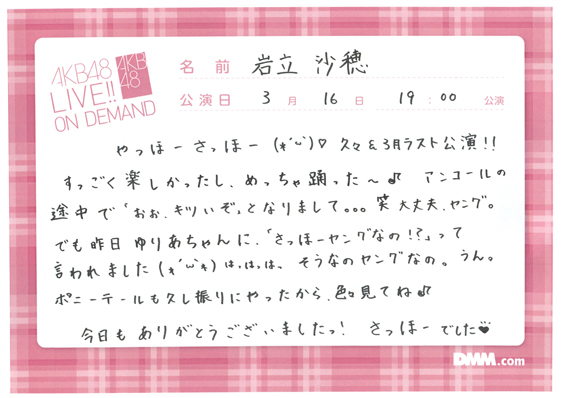 AKB48
LIVE!!
ON DEMAND
AKB
48
名前 岩立 沙穂
公演日 3月 16日 19:00 公演
やっほーさっほー (*´ω`)♡ 久々&3月ラスト公演!!
すっごく楽しかったし、めっちゃ踊った〜♪ アンコールの
途中で「おお、キツいぞ」となりまして。。。笑 大丈夫、ヤング。
でも昨日ゆりあちゃんに、「さっほーヤングなの!?」って
言われました(*´ω`*) は、は、は、 そうなのヤングなの。うん。
ポニーテールも久し振りにやったから、色々見てね♪
今日も ありがとうございましたっ! さっほーでした♥
DMM.com